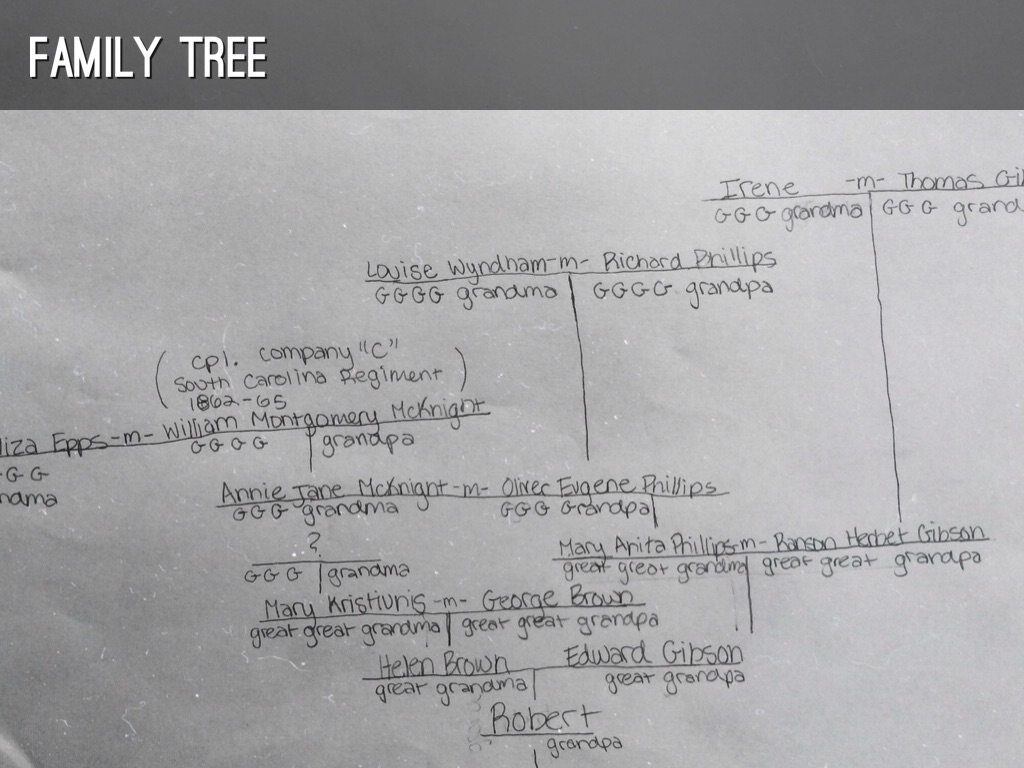 FAMILY TREE
Irene -m- Thomas Gi
G G G grandma G G G grand
Louise Wyndham -m- Richard Phillips
G G G G grandma G G G G grandpa
( cpl. Company "C" )
South Carolina Regiment
1862-65
liza Epps -m- William Montgomery McKnight
G G G G grandpa
G G
ndma
Annie Jane McKnight -m- Oliver Eugene Phillips
G G G grandma G G G Grandpa
?
G G G grandma
Mary Anita Phillips -m- Ranson Herbet Gibson
great great grandma great great grandpa
Mary Kristiuris -m- George Brown
great great grandma great great grandpa
Helen Brown Edward Gibson
great grandma great grandpa
Robert
grandpa